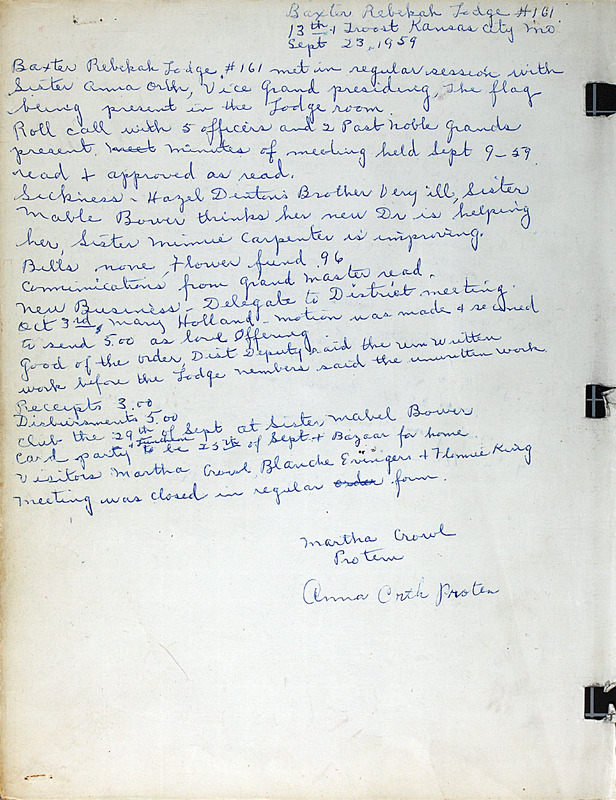 Baxter Rebekah Lodge #161
13th & Troost Kansas City Mo
Sept 23, 1959
Baxter Rebekah Lodge #161 met in regular session with
Sister Anna Orth, Vice Grand presiding, The flag
being present in the Lodge room
Roll call with 5 officers and 2 Past Noble Grands
present. meet minutes of meeting held Sept 9-59
read & approved as read.
Sickness - Hazel Denton's Brother Very ill, Sister
Mable Bower thinks her new Dr is helping
her, Sister Minnie Carpenter is improving.
Bills none, Flower fund .96
Comunications from Grand Master read.
New Business - Delegate to District meeting
Oct 3rd, Mary Holland - motion was made & seconed
to send 5.00 as love Offering
Good of the order Dist Deputy said the unwritten
work before the Lodge members said the unwritten work
Receipts 3.00
Disbursments 5.00
Club the 29th of Sept at Sister Mabel Bower
Card party to be 25th of Sept & Bazaar for home
Visitors Martha Crowl, Blanche & Flonnie King
Meeting was closed in regular order form.
Martha Crowl
Protem
Anna Orth Protem